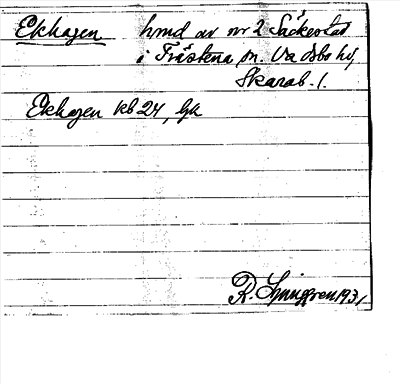 Ekhagen hmd av nr 2 Säckestad
i Fråstena sn. Vadsbo hd
Skarab. l.
Ekhagen kb 24, lgk
R. Ljunggren 1931